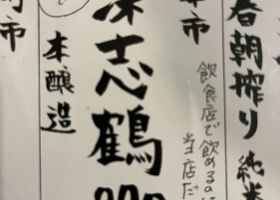 春朝搾り 純米
市
飲食店で飲めるのは
当店だ
深志鶴
本醸造
市